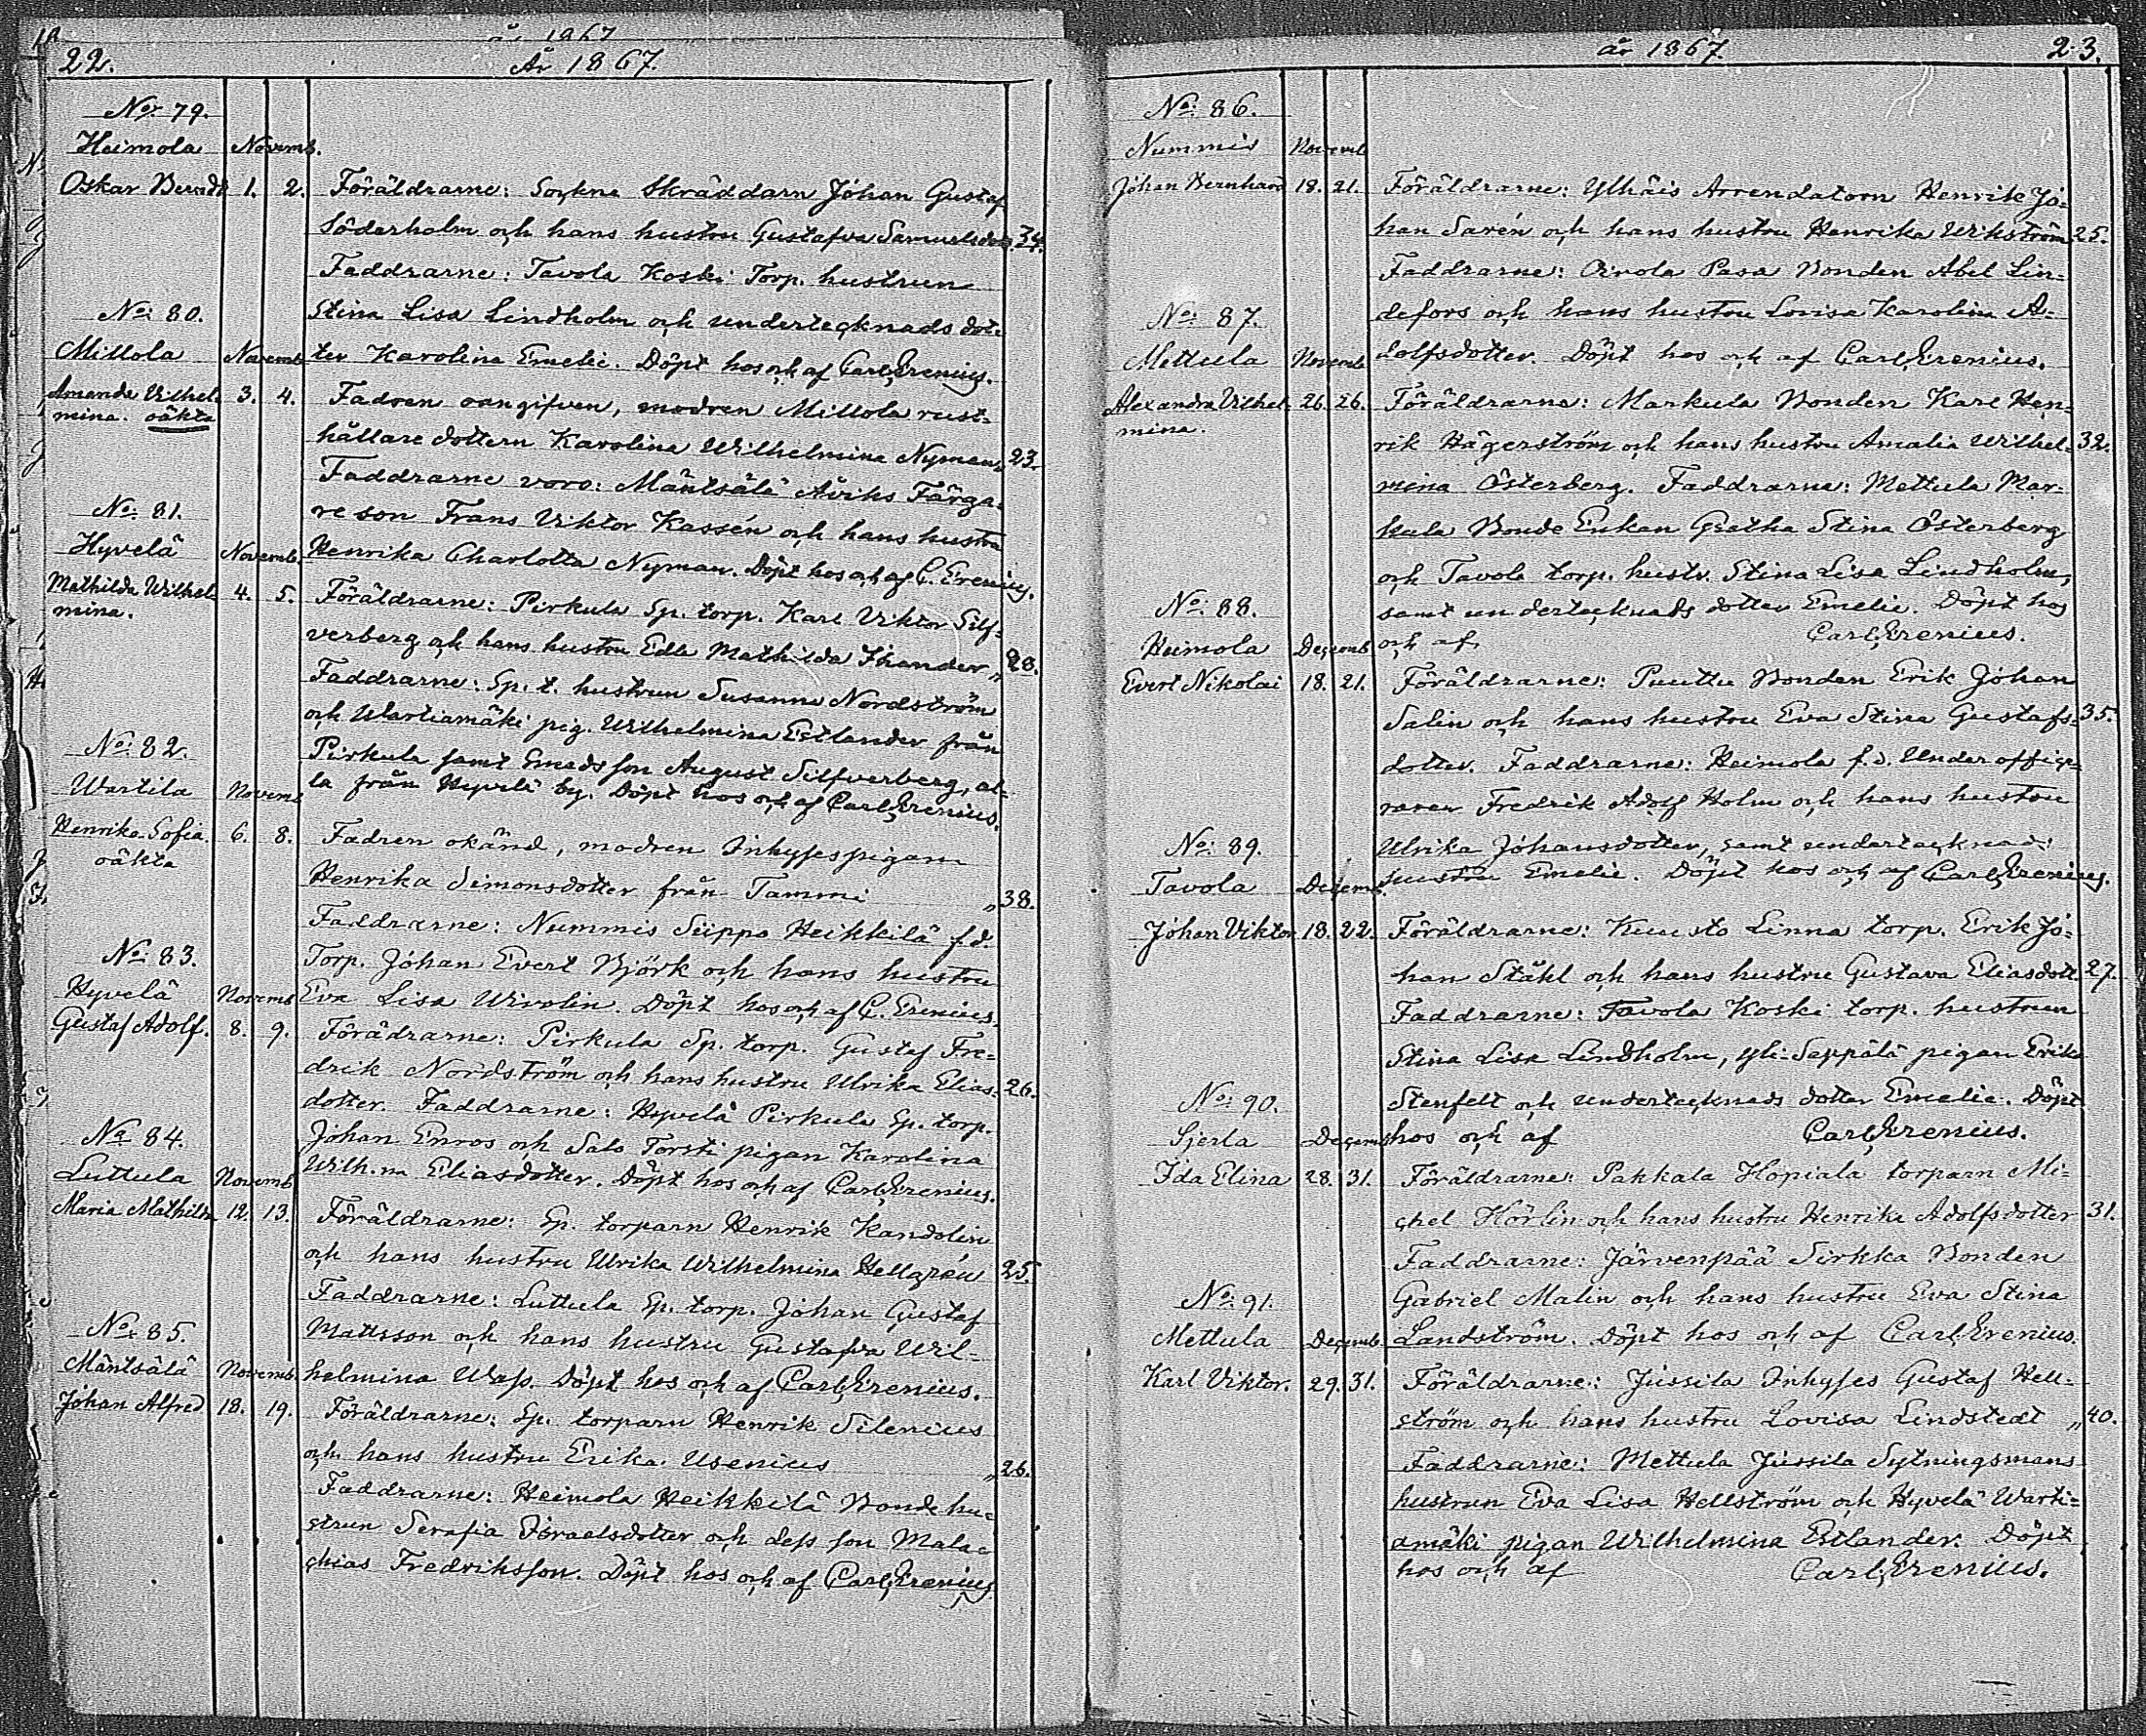 22.
År 1867.
No: 79.
Heimola Novemb.
Oskar Berndt 1. 2. Föräldrarne: Sockne Skräddarn Johan Gustaf
Söderholm och hans hustru Gustafva Samuelsdotr 34.
Faddrarne: Tavola Koski Torp. hustrun
No: 80.
Stina Lisa Lindholm och undertecknads dot-
Millola Novemb.
ter Karolina Emelie. Döpt hos och af Carl Grenius.
Amanda Vilhel- 3. 4. Fadren oangifven, modren Millola rust-
mina. oäkta
hållare dottern Karolina Wilhelmina Nyman „ 23.
Faddrarne voro: Mäntsälä Åviks Färga-
No: 81.
re son Frans Viktor Kassén och hans hustru
Hyvelä Novemb.
Henrika Charlotta Nyman. Döpt hos och af C. Grenius.
Mathilda Wilhel- 4. 5. Föräldrarne: Pirkula Sp. torp. Karl Viktor Silf-
mina.
verberg och hans hustru Edla Mathilda Ihander „ 28.
Faddrarne: Sp. t. hustrun Susanna Nordström
och Wartiamäki pig. Wilhelmina Estlander från
No: 82.
Pirkula samt Smeds son August Silfverberg, al-
Wartila Novemb
la från Hyvelä by. Döpt hos och af Carl Grenius.
Henrika Sofia. 6. 8. Fadren okänd, modren Inhysespigan
oäkta
Henrika Simonsdotter från Tammi „ 38.
Faddrarne: Nummis Seippo Heikkilä f.d.
No: 83.
Torp. Johan Evert Björk och hans hustru
Hyvelä Novemb
Eva Lisa Wivolin. Döpt hos och af C. Grenius.
Gustaf Adolf. 8. 9. Förädrarne: Pirkula Sp. torp. Gustaf Fre-
drik Nordström och hans hustru Ulrika Elias- 26.
dotter. Faddrarne: Hyvelä Pirkula Sp. torp.
No 84.
Johan Enros och Salo Torsti pigan Karolina
Luttula Novemb
Wilh.na Eliasdotter. Döpt hos och af Carl Grenius.
Maria Mathilda 12. 13. Föräldrarne: Sp. torparn Henrik Kandolin
och hans hustru Ulrika Wilhelmina Hellgrén 25.
Faddrarne: Luttula Sp. torp. Johan Gustaf
No: 85.
Mattsson och hans hustru Gustafva Wil-
Mäntsälä Novemb.
helmina Wass. Döpt hos och af Carl Grenius.
Johan Alfred 18. 19. Föräldrarne: Sp. torparn Henrik Silenius
och hans hustru Erika Usenius „ 26.
Faddrarne: Heimola Heikkilä Bonde hu-
strun Serafia Israelsdotter och dess son Mala-
chias Fredriksson. Döpt hos och af Carl Grenius
år 1867. 23.
No: 86.
Nummis Novemb
Johan Bernhard 18. 21. Föräldrarne: Ylhäis Arrendatorn Henrik Jo-
han Sarén och hans hustru Henrika Wikström 25.
Faddrarne: Oivola Pasa Bonden Abel Lin-
No: 87.
defors och hans hustru Lovisa Karolina A-
Mettula Novemb
dolfsdotter. Döpt hos och af Carl Grenius.
Alexandra Vilhel- 26. 26. Föräldrarne: Markula Bonden Karl Hen-
mina.
rik Hägerström och hans hustru Amalia Wilhel- 32.
mina Österberg. Faddrarne: Mettula Mar-
kula Bonde Enkan Gretha Stina Österberg
och Tavola torp. hustr. Stina Lisa Lindholm,
No: 88.
samt undertecknads dotter Emelie. Döpt hos
Heimola Decemb och af Carl Grenius.
Evert Nikolai 18. 21. Föräldrarne: Puuttu Bonden Erik Johan
Salin och hans hustru Eva Stina Gustafs- 35.
dotter. Faddrarne: Heimola f.d. Underoffice-
raren Fredrik Adolf Holm och hans hustru
No: 89.
Ulrika Johansdotter, samt undertecknads
Tavola Decemb.
hustru Emelie. Döpt hos och af Carl Grenius.
Johan Viktor 18. 22. Föräldrarne: Kuusto Linna torp. Erik Jo-
han Ståhl och hans hustru Gustava Eliasdott. 27.
Faddrarne: Tavola Koski torp. hustrun
Stina Lisa Lindholm, Yli-Seppälä pigan Erika
No: 90.
Stenfelt och undertecknads dotter Emelie. Döpt
Sjerla Decemb hos och af Carl Grenius.
Ida Elina 28. 31. Föräldrarne: Pakkala Hopiala torparn Mi-
chel Hörlin och hans hustru Henrika Adolfsdotter 31.
Faddrarne: Järvenpää Sirkka Bonden
No: 91.
Gabriel Malin och hans hustru Eva Stina
Mettula Decemb. Landström. Döpt hos och af Carl Grenius.
Karl Viktor. 29. 31. Föräldrarne: Jussila Inhyses Gustaf Hell-
ström och hans hustru Lovisa Lindstedt „ 40.
Faddrarne: Mettula Jussila Sytningsmans
hustrun Eva Lisa Hellström och Hyvelä Warti-
amäki pigan Wilhelmina Estlander. Döpt
hos och af Carl Grenius.